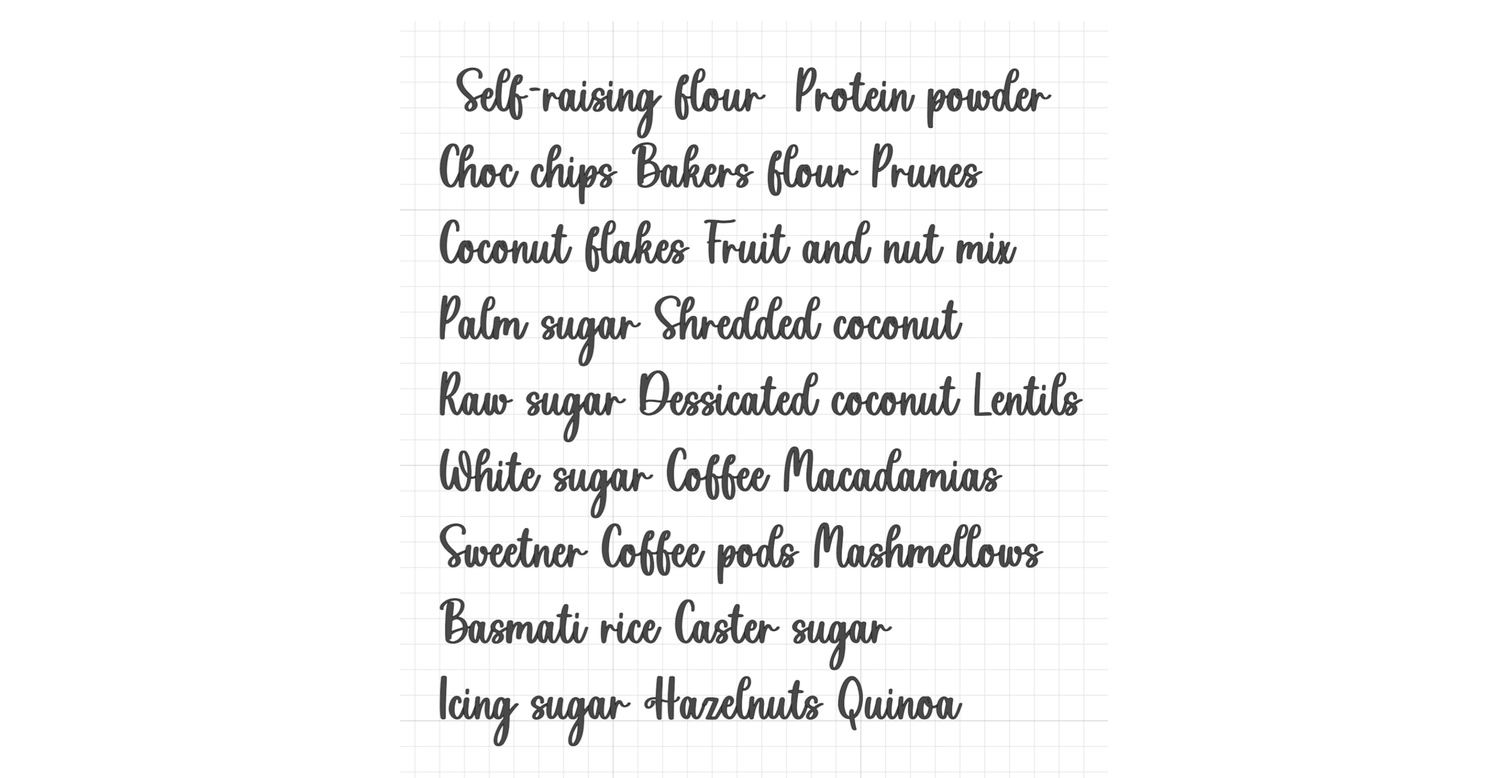 Self-raising flour Protein powder
Choc chips Bakers flour Prunes
Coconut flakes Fruit and nut mix
Palm sugar Shredded coconut
Raw sugar Dessicated coconut Lentils
White sugar Coffee Macadamias
Sweetner Coffee pods Mashmellows
Basmati rice Caster sugar
Icing sugar Hazelnuts Quinoa